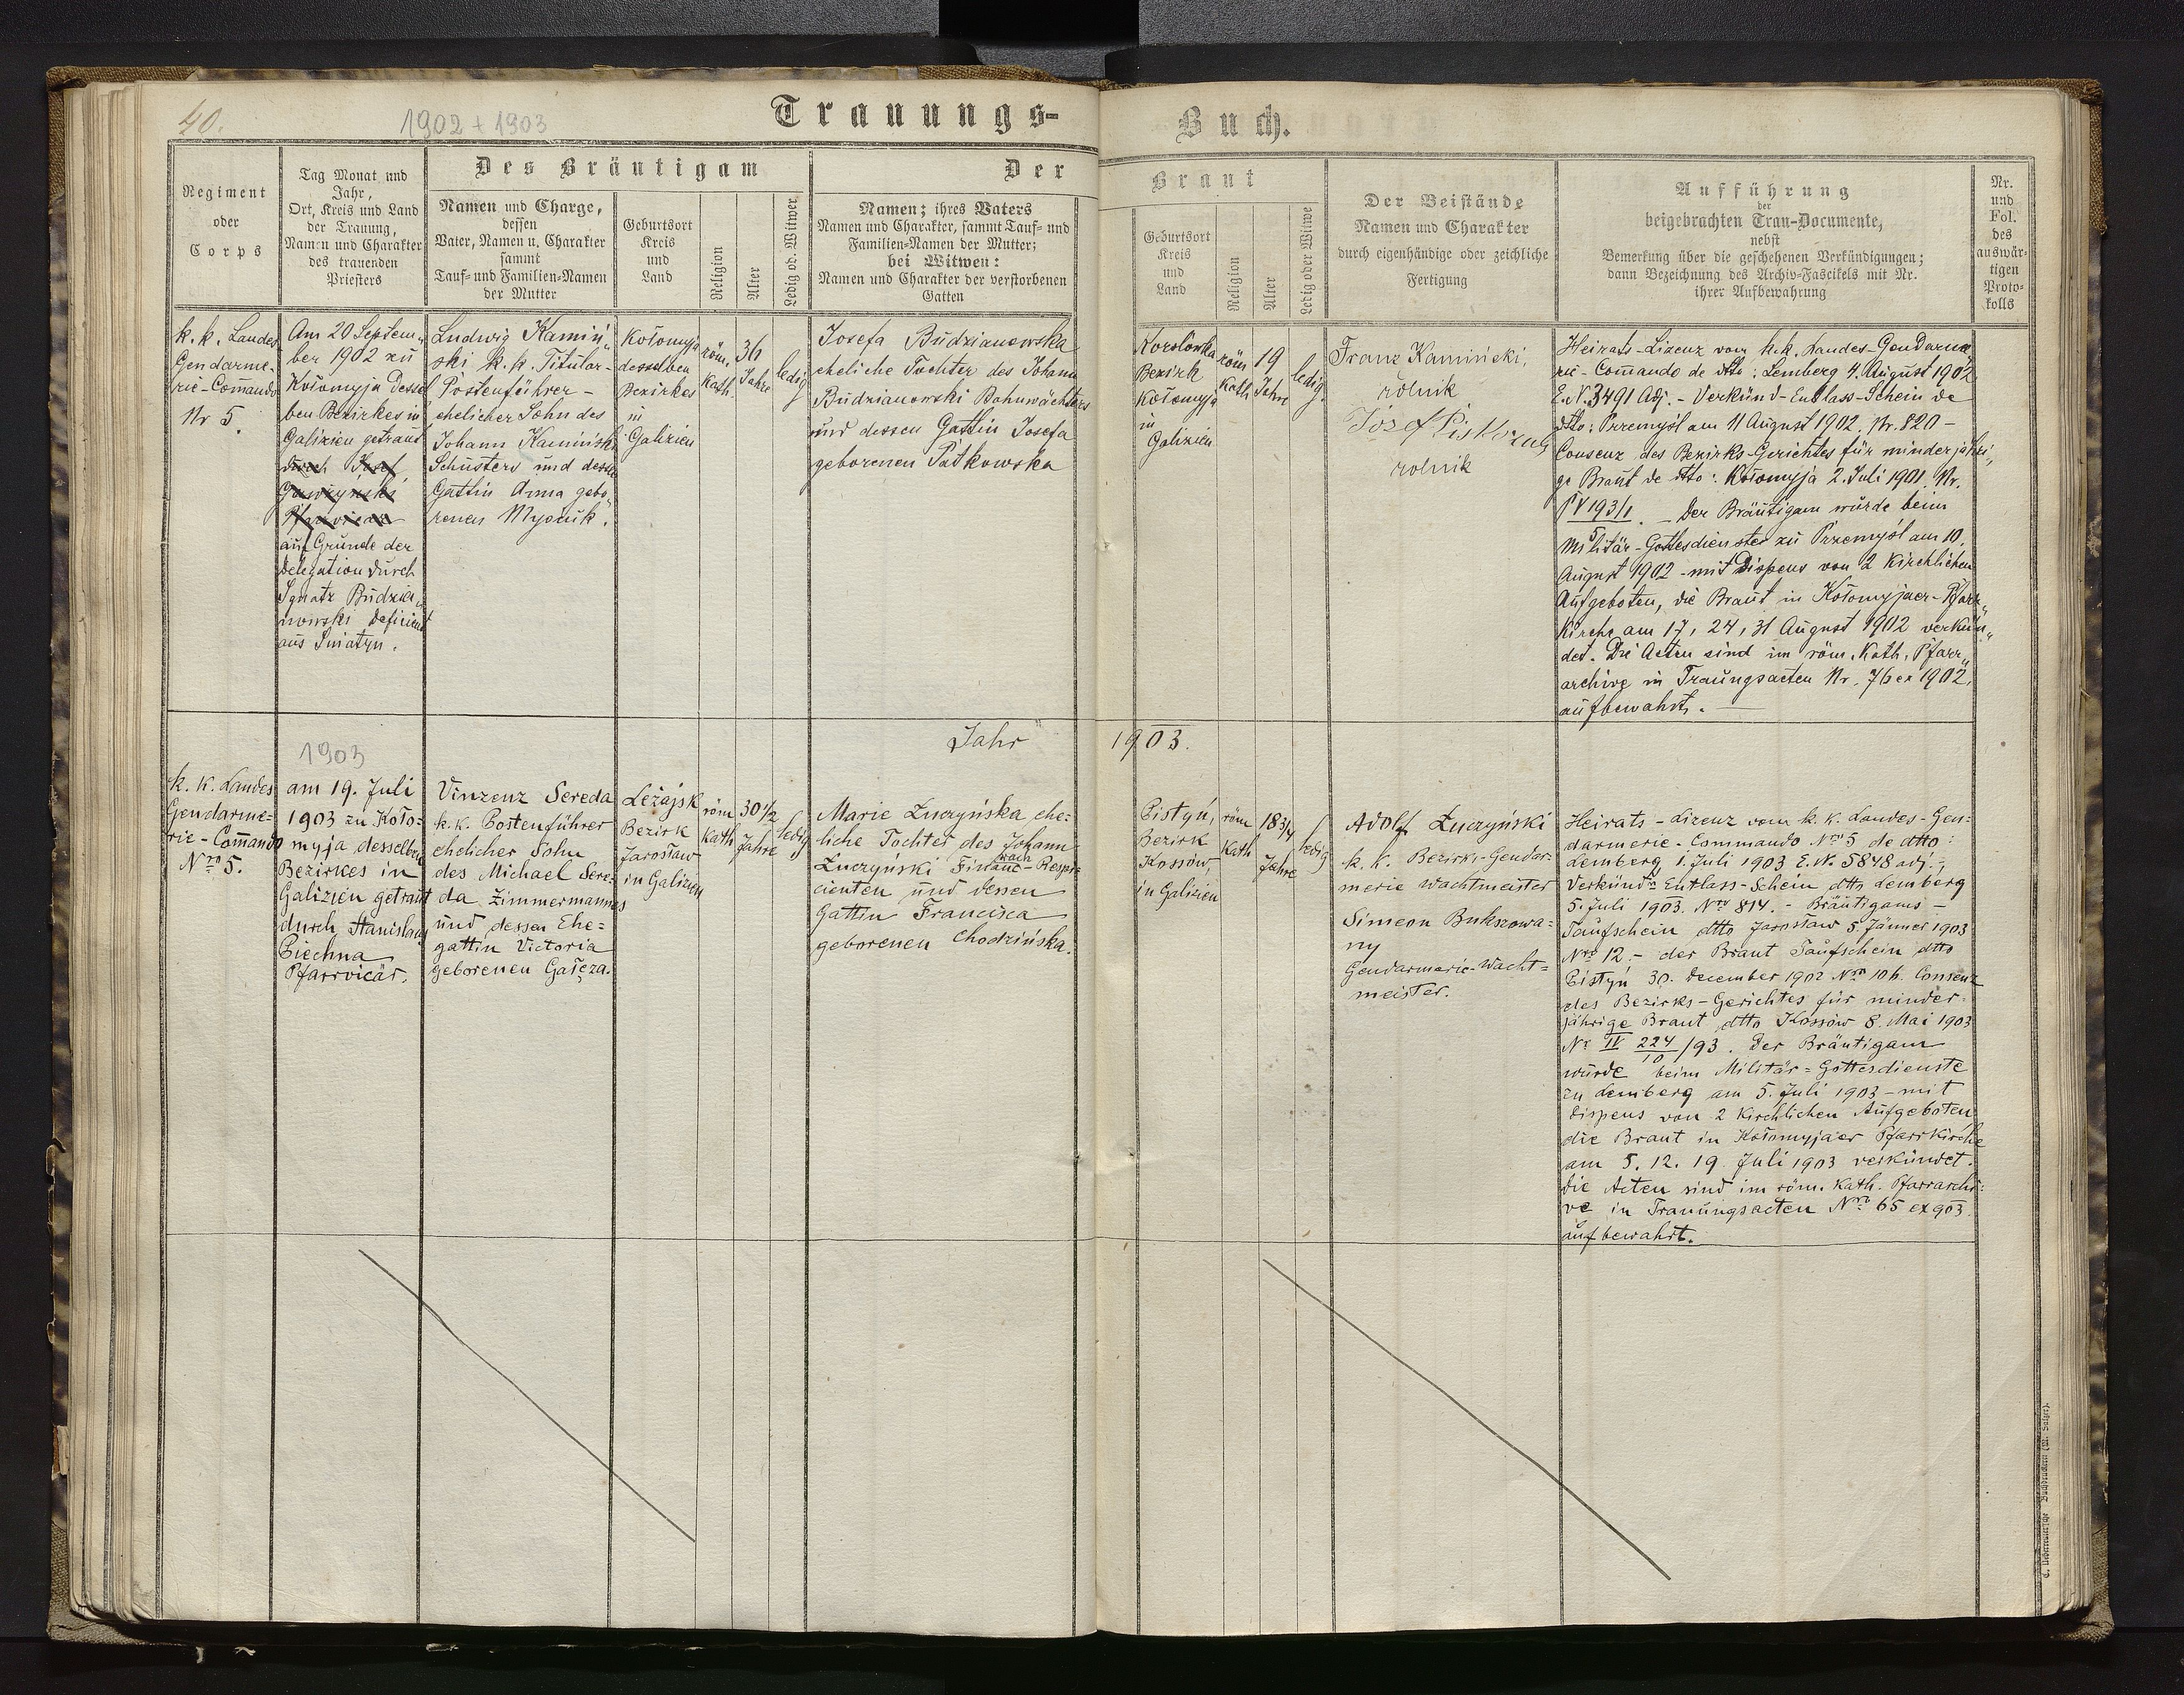 40.
1902 + 1903
Trauungs-
Buch.
Regiment
oder
Corps
Tag Monat und
Jahr,
Ort, Kreis und Land
der Trauung,
Namen und Charakter
des trauenden
Priesters
Des Bräutigam
Namen und Charge,
dessen
Vater, Namen u. Charakter
sammt
Tauf- und Familien-Namen
der Mutter
Geburtsort
Kreis
und
Land
Religion
Alter
Ledig od. Witwer
Der
Namen; ihres Vaters
Namen und Charakter, sammt Tauf- und
Familien-Namen der Mutter;
bei Witwen:
Namen und Charakter der verstorbenen
Gatten
Braut
Geburtsort
Kreis
und
Land
Religion
Alter
Ledig oder Witwe
Der Beistände
Namen und Charakter
durch eigenhändige oder zeichliche
Fertigung
Aufführung
der
beigebrachten Trau-Documente,
nebst
Bemerkung über die geschehenen Verkündigungen;
dann Bezeichnung des Archiv-Fascikels mit Nr.
ihrer Aufbewahrung
Nr.
und
Fol.
des
auswär-
tigen
Proto-
kolls
k. k. Landes
Gendarme-
rie-Com̄ando
Nr 5.
Am 20 Septem„
ber 1902 zu
Kołomyja dessel
ben Bezirkes in
Galizien getraut
durch Josef
Pfarrvicar
auf Grunde der
Delegation durch
Ignatz Budzia„
nowski Deficient
aus Śniatyn.
Ludwig Kamiń„
ski k. k. Titular-
Postenführer -
ehelicher Sohn des
Johann Kamiński
Schusters und dessen
Gattin Anna gebo„
renen Mysiuk.
Kołomyja
desselben
Bezirkes
in
Galizien
röm.
kath.
36
Jahre
ledig
Josefa Budzianowska
eheliche Tochter des Johann
Budzianowski Bahnwächters
und dessen Gattin Josefa
geborenen Patkowska
Korolówka
Bezirk
Kołomyja
in
Galizien
röm
kath
19
Jahre
ledig.
Franz Kamiński,
rolnik
Józef Piskozub
rolnik
Heirats-Lizenz vom k.k. Landes-Gendarme
rie-Com̄ando de dtto: Lemberg 4. August 1902
E.N. 3491 Adj. - Verkünd-Entlass-Schein de
dtto: Przemyśl am 11 August 1902. Nr. 820 -
Consenz des Bezirks-Gerichtes für minderjähri„
ge Braut de dtto: Kołomyja 2. Juli 1901. Nr.
P V 193/1
5. - Der Bräutigam wurde beim
Militär-Gottesdienste zu Przemyśl am 10.
August 1902 - mit Dispens von 2 kirchlichen
Aufgeboten, die Braut in Kołomyjaer-Pfarr„
kirche am 17, 24, 31 August 1902 verkün„
det. Die Acten sind im röm. Kath. Pfarr„
archive in Trauungsacten Nr. 76 ex 1902.
aufbewahrt.
Jahr 1903.
1903
k. k. Landes
Gendarme=
rie-Com̄ando
Nro 5.
am 19. Juli
1903 zu Koło=
myja desselben
Bezirkes in
Galizien getraut
durch Stanislaus
Piechna
Pfarrvicär.
Vinzenz Sereda
k. k. Postenführer
ehelicher Sohn
des Michael Sere-
da Zimmermannes
und dessen Ehe=
gattin Victoria
geborenen Gałęza.
Leżajsk
Bezirk
Jarosław
in Galizien
röm
kath
30 1/2
Jahre
ledig
Marie Łuczyńska ehe=
liche Tochter des Johann
Łuczyński Finanz-wach-Respi-
cienten und dessen
Gattin Francisca
geborenen Chodzińska.
Pistyń,
Bezirk
Kossów,
in Galizien
röm
kath
18 3/4
Jahre
ledig
Adolf Łuczyński
k. k. Bezirks-Gendar-
merie Wachtmeister
Simeon Bukszowa=
ny
Gendarmerie-Wacht=
meister.
Heirats-Lizenz vom k. k. Landes-Gen-
darmerie-Commando Nro 5 de dtto:
Lemberg 1. Juli 1903 E. N. 5848 adj. -
Verkünd= Entlass-Schein dtto Lemberg
5. Juli 1903. Nro 814. - Bräutigams-
Taufschein dtto Jarosław 5. Jänner 1903
Nro 12. - der Braut Taufschein dtto
Pistyń 30. December 1902 Nro 106. Consenz
des Bezirks-Gerichtes für minder-
jährige Braut dtto Kossów 8. Mai 1903
Nr IV 224/10 /93. Der Bräutigam
wurde beim Militär=Gottesdienste
zu Lemberg am 5. Juli 1903 - mit
Dispens von 2 kirchlichen Aufgeboten,
die Braut in Kołomyjaer Pfarrkirche
am 5. 12. 19. Juli 1903 verkündet.
Die Acten sind im röm. kath. Pfarrarchi-
ve in Trauungsacten Nro 65 ex 903
aufbewahrt.